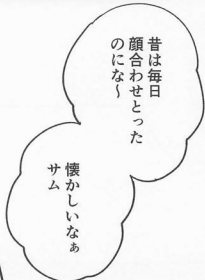 昔は毎日
顔合わせとった
のにな～
懐かしいなぁ
サム